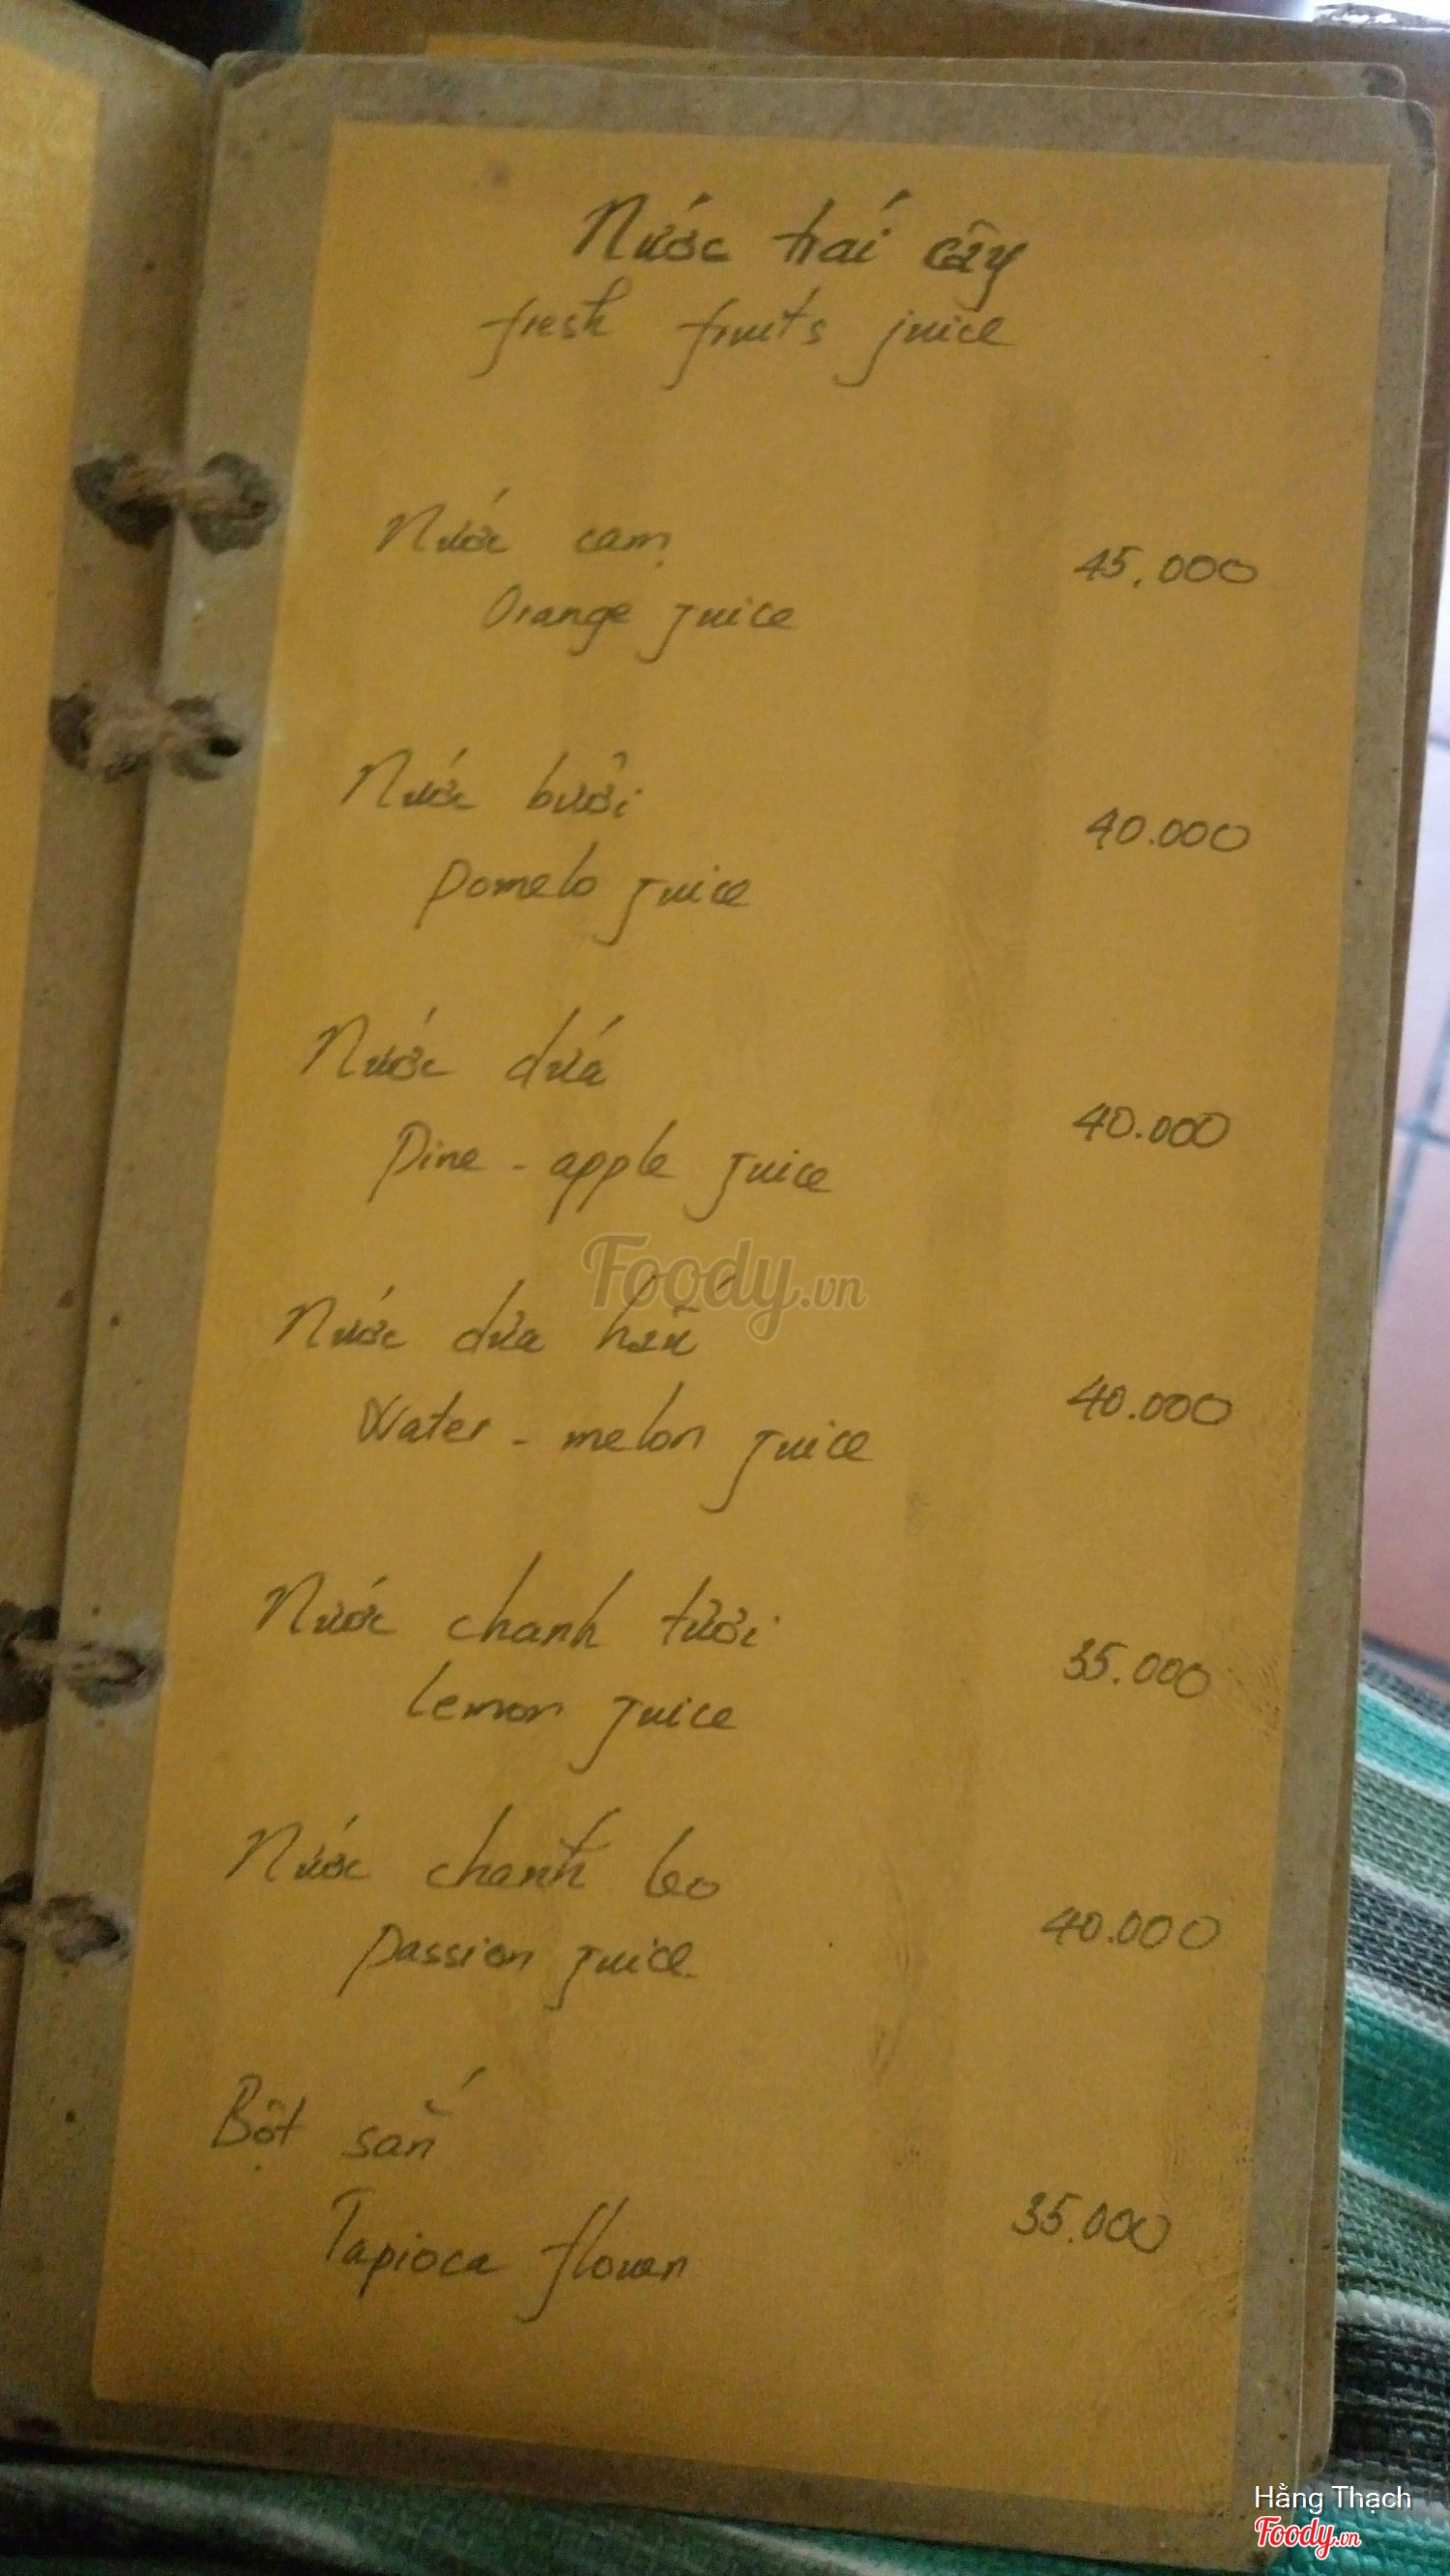 Nước trái cây
fresh fruits juice
Nước cam 45.000
Orange juice
Nước bưởi 40.000
Pomelo juice
Nước dứa 40.000
Pine - apple juice
Foody.vn
Nước dưa hấu 40.000
Water - melon juice
Nước chanh tươi 35.000
Lemon juice
Nước chanh leo 40.000
Passion juice
Bột sắn 35.000
Tapioca
Hằng Thạch
Foody.vn